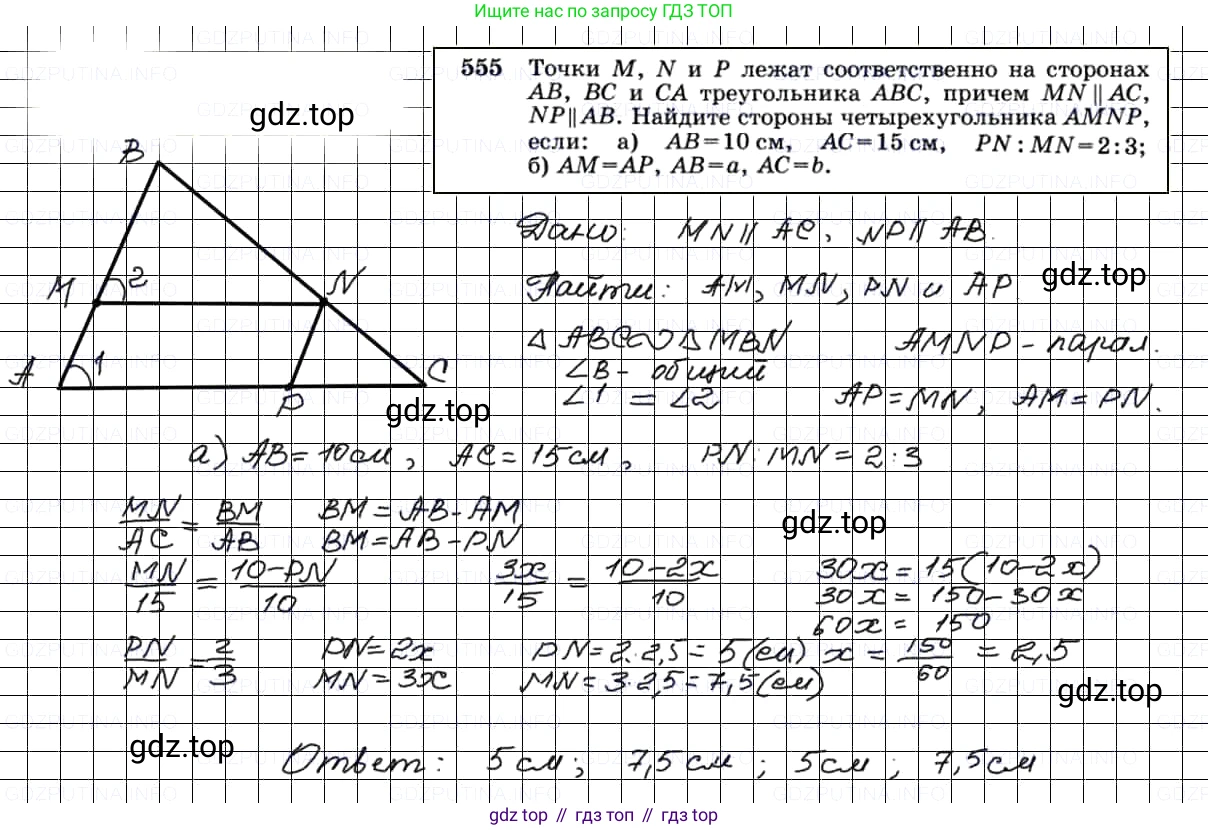 Ищите нас по запросу ГДЗ ТОП
555 Точки M, N и P лежат соответственно на сторонах
AB, BC и CA треугольника ABC, причем MN || AC,
NP || AB. Найдите стороны четырехугольника AMNP,
если: а) AB=10 см, AC=15 см, PN : MN=2:3;
б) AM=AP, AB=a, AC=b.
gdz.top
B
M 2 N
A 1 P C
Дано: MN || AC, NP || AB.
gdz.top
Найти: AM, MN, PN и AP
△ ABC ∾ △ MBN AMNP - парал.
∠B - общий
∠1 = ∠2 AP = MN, AM = PN.
gdz.top
а) AB = 10 см, AC = 15 см, PN : MN = 2 : 3
MN/AC = BM/AB BM = AB - AM
BM = AB - PN
gdz.top
MN/15 = 10-PN/10 3x/15 = 10-2x/10 30x = 15(10-2x)
30x = 150 - 30x
60x = 150
PN/MN = 2/3 PN = 2x PN = 2·2,5 = 5 (см) x = 150/60 = 2,5
MN = 3x MN = 3·2,5 = 7,5 (см)
gdz.top
gdz.top
Ответ: 5 см; 7,5 см; 5 см; 7,5 см
gdz.top // гдз топ // gdz top